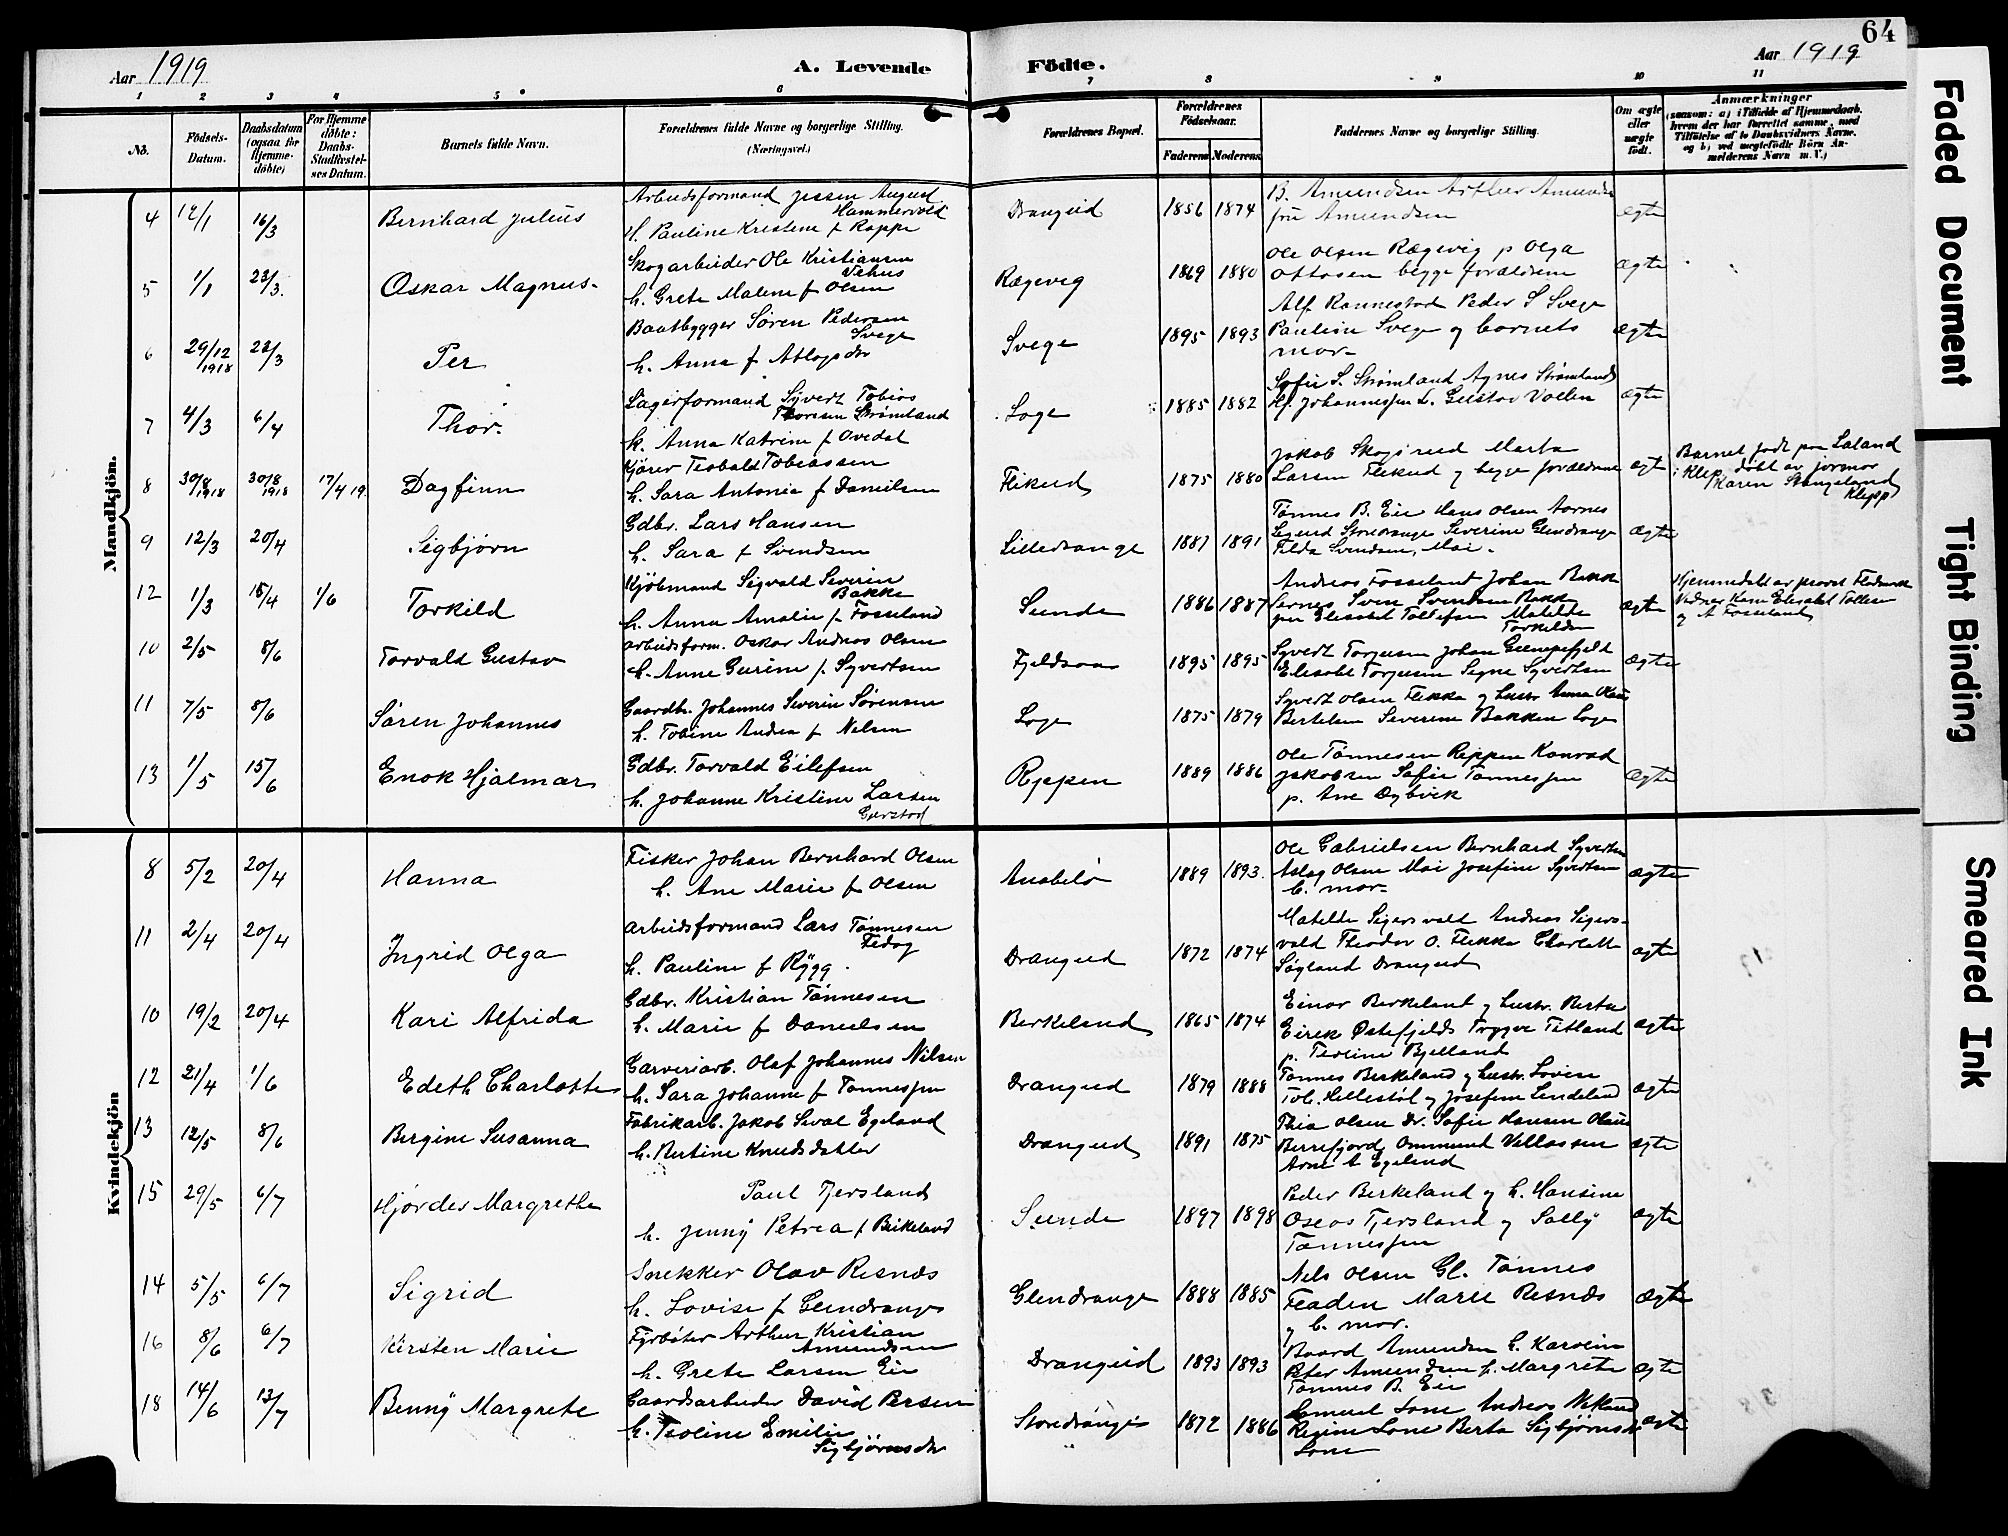 64
Aar 1919
A. Levende Födte.
Aar 1919
1 2 3 4 5 6 7 8 9 10 11
No.
Födsels-Datum.
Daabsdatum (ogsaa for Hjemme-döbte)
For Hjemme döbte: Daabs-Stadfæstel-ses Datum.
Barnets fulde Navn.
Forældrenes fulde Navne og borgerlige Stilling. (Næringsvei.)
Forældrenes Bopæl.
Forældrenes Födselsaar.
Faderens Moderens
Faddernes Navne og borgerlige Stilling.
Om ægte eller uægte født.
Anmærkninger
(saasom: a) i Tilfælde af Hjemmedaab. hvem der har forrettet samme, med Tilföielse af to Daabsvidners Navne. og b) ved uægtefödte Börn An-melderens Navn m. V.)
Mandkjön.
4 12/1 16/3 Bernhard Julius
Arbeidsformand Jessen August Hammervold
H. Pauline Kristine f Rappe
Drangeid 1856 1874
B. Amundsen Arthur Amundsen
fru Amundsen
ægte
5 1/1 23/3. Oskar Magnus.
Skogarbeider Ole Kristiansen
h. Grete Malene f Olsen
Rægevig 1869 1880
Ole Olsen Rægevig p Olga
Ottosen begge forældrene
ægte
6 29/12 1918 23/3 Per
Baatbygger Søren Pedersen Svege
h. Anna f
Svege 1895 1893
Alf Rannestad Peder S Svege
Pauline Svege og barnets
mor
ægte
7 4/3 6/4 Thor.
Lagerformand Syvert Tobias
Thorsen Strømland
h. Anna Katrine f Ovedal
Loge 1885 1882
Sofie S. Strømland Agnes Strømland
Hj. Johannessen L. Gustav Vollen
ægte
8 30/8 1918 30/8 1918 17/4 19. Dagfinn
Teobald Tobiassen
h. Sara Antonie f Danielsen
Flikeid 1875 1880
Jakob Marta
Larsen Flikeid og begge forældrene
ægte
Barnet født paa Laland
i Klep, døbt av jormor
Karen Stangeland
Klepp
9 12/3 20/4 Sigbjørn
Gdbr. Lars Hansen
h. Sara f Svendsen
Lilledrange 1887 1891
Tønnes B. Eie Hans Olsen Aarnes
Sigurd Storedrange Severine Glendrange
Tilda Svendsen, Moi.
ægte
12 1/3 15/4 1/6 Torkild
Kjøbmand Sigvald Severin Bakke
h. Anna Amalie f. Fosseland
Sunde 1886 1887
Andreas Fosseland Johan Bakke
Svend Svendsen Bakke
fru Elisabet Tollefsen Matilde
Torkildsen
ægte
Hjemmedøbt av provst
Vidner Karen Elisabet Tollefsen
og A Fosseland
10 2/5 8/6 Torvald Gustav
arbeidsform. Oskar Andreas Olsen
h. Anne Gurine f. Syvertsen
Fjeldsaa 1895 1895
Syvert Torjusen Johan
Elisabet Torjusen Signe Syvertsen
ægte
11 7/5 8/6 Søren Johannes
Gaardbr. Johannes Severin Sørensen
h. Tobine Andrea f Nilsen
Loge 1875 1879
Syvert Olsen Flikka og hustr. Anna Olsen
Bertelsen Severine Bakken Loge
13 1/5 15/6 Enok Hjalmar
Gdbr. Torvald Eilefsen
h. Johanne Kristine Larsen
Gursted
Reppen 1889 1886
Ole Tønnesen Reppen Konrad
Jakobsen Sofie Tønnessen
p. Ane Dybvik
ægte
Kvindekjön
8 5/2 20/4 Hanna
Fisker Johan Bernhard Olsen
h. Ane Marie f Olsen
Anabelø 1889 1893.
Ole Gabrielsen Bernhard Syvertsen
Aslag Olsen Moi Josefine Syvertsen
b. mor
ægte
11 2/4 20/4 Ingrid Olga
Arbeidsformand Lars Tønnesen
Fedog
h. Pauline f Rygg.
Drangeid 1872 1874
Matilde Sigersvold Andreas Sigers-
vold Theodor O. Flikka Charlotte
Søgland Drangeid
ægte
10 19/2 20/4 Kari Alfrida
Gdbr. Kristian Tønnesen
h. Marie f Danielsen
Birkeland 1865 1874
Einar Birkeland og hustr. Berta
Eirek Østefjelds Trygve Titland
p. Teoline Bjelland
ægte
12 21/4 1/6 Edeth Charlotte
Garveriarb. Olaf Johannes Nilsen
h. Sara Johanne f Tønnessen
Drangeid 1879 1888
Tønnes Birkeland og hustr. Lovise
Tob. Hellestøl og Josefine Lindeland
ægte
13 12/5 8/6 Bergine Susanna
Fabrikarb. Jakob Sival Egeland
h. Bertine Knudsdatter
Drangeid 1891 1875
Thea Olsen Dr. Sofie Hansen Olsen
Berrefjord Ommund Villassen
Arne A Egeland
ægte
15 29/5 6/7 Hjørdes Margrethe
Paul Tjersland
h. Jenny Petrea f Birkeland
Sunde 1897 1898
Peder Birkeland og h. Hansine
Oseas Tjersland og Sally
Tønnessen
ægte
14 5/5 6/7 Sigrid
Snekker Olav Risnæs
h. Lovise f Glendrange
Glendrange 1888 1885
Nels Olsen Gl. Tønnes
Feaden Marie Risnæs
og b. mor.
ægte
16 8/6 6/7 Kirsten Marie
Fyrbøter Arthur Kristian
Amundsen
h. Grete Larsen Eie
Drangeid 1893 1893
Baard Amundsen h. Karoline
Peter Amundsen h. Margrete
Tønnes B. Eie
ægte
18 14/6 13/7 Benny Margrete
Gaardarbeider David Persen
h. Teoline Emilie
Sigbjørnsdtr
Storedrange 1872 1886
Samuel Lone Andreas
Regine Lone Berta Sigbjørnsd.
Lone
ægte
Faded Document
Tight Binding
Smeared Ink